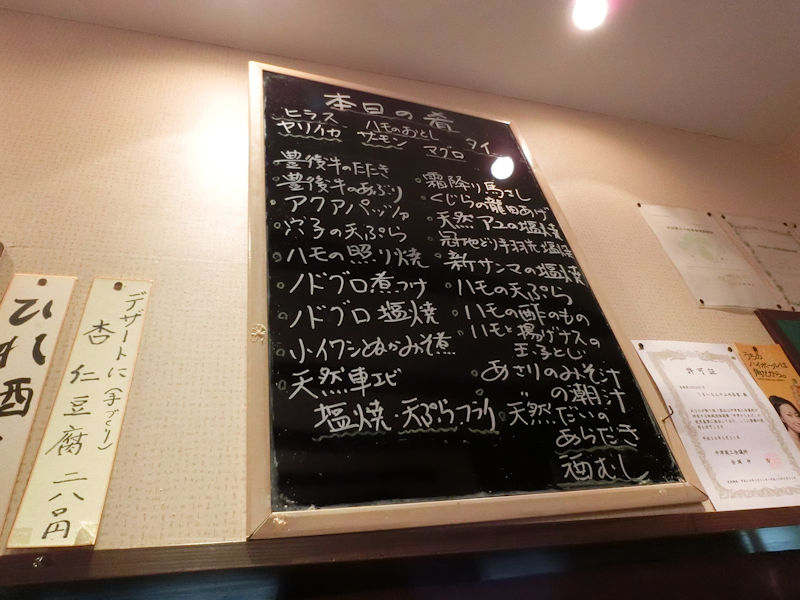 本日の肴
ヒラス ハモのおとし タイ
ヤリイカ サーモン マグロ
豊後牛のたたき
豊後牛のあぶり
アクアパッツァ
穴子の天ぷら
ハモの照り焼
ノドグロ煮つけ
ノドグロ塩焼
小イワシぬかみそ煮
天然車エビ
塩焼・天ぷらフライ
霜降り馬さし
くじらの龍田あげ
天然アユの塩焼
冠地どり手羽先塩焼
新サンマの塩焼
ハモの天ぷら
ハモの酢のもの
ハモと揚げナスの
玉子とじ
あさりのみそ汁
の潮汁
天然だいの
あらだき
酒むし
デザートに(手づくり)
杏仁豆腐 二八〇円
ひれ酒
許可証
うちの
ハイボールは